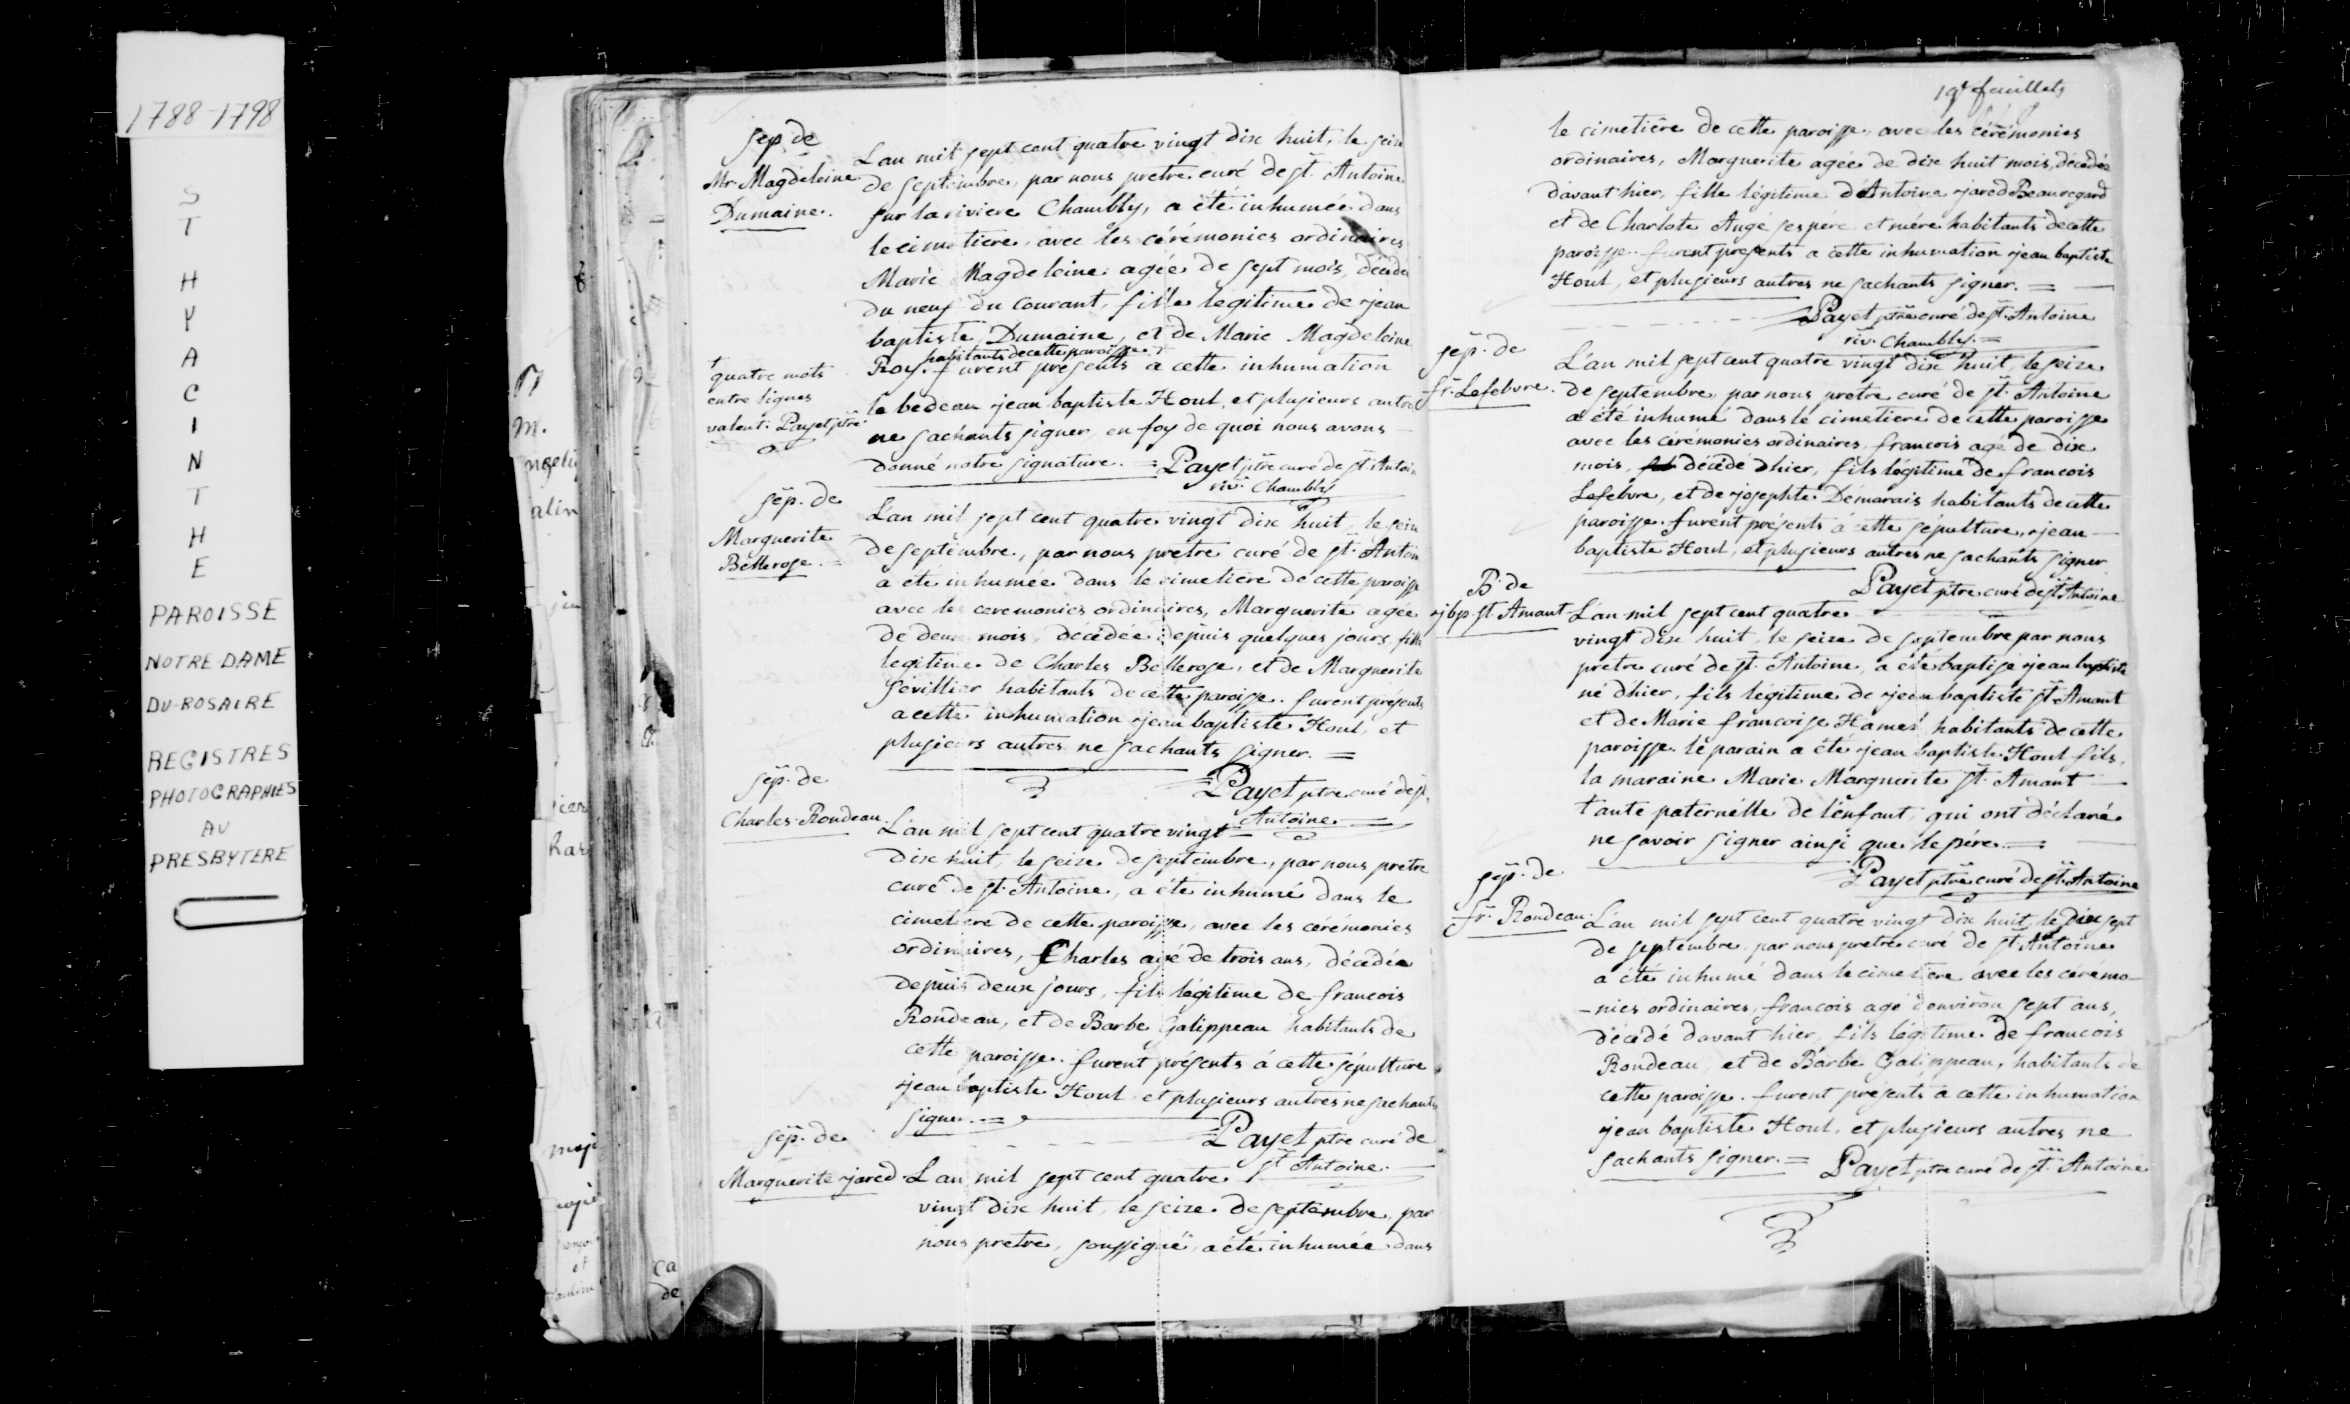 1788-1798
ST HYACINTHE
PAROISSE
NOTRE-DAME
DU-ROSAIRE
REGISTRES
PHOTOGRAPHIES
AU
PRESBYTERE
sep. de
Mr Magdeleine
Dumaine.
L'an mil sept cent quatre vingt dix huit, le seize
de septembre, par nous pretre curé de st. Antoine
sur la riviere Chambly, a été inhumée dans
le cimetiere avec les cérémonies ordinaires
Marie Magdeleine agée de sept mois, décédée
du neuf du courant, fille legitime de jean
baptiste Dumaine, et de Marie Magdeleine
habitants de cette paroisse +
Roy. furent présents a cette inhumation
le bedeau jean baptiste Houl, et plusieurs autres
ne sachants signer, en foy de quoi nous avons
donné notre signature. = Payet ptre curé de st. Antoine
riv. Chambly
+
quatre mots
entre lignes
valent. Payet ptre
sép. de
Marguerite
Bellerose.
L'an mil sept cent quatre vingt dix huit, le seize
de septembre, par nous pretre curé de st. Antoine
a été inhumée dans le cimetiere de cette paroisse
avec les ceremonies ordinaires, Marguerite agée
de deux mois, décédée depuis quelques jours, fille
legitime de Charles Bellerose, et de Marguerite
Sévillier habitants de cette paroisse. furent présents
a cette inhumation jean baptiste Houl, et
plusieurs autres ne sachants signer. =
Payet ptre curé de st.
Antoine =
sép. de
Charles Rondeau.
L'an mil sept cent quatre vingt
dix huit, le seize de septembre, par nous pretre
curé de st. Antoine, a été inhumé dans le
cimetiere de cette paroisse, avec les cérémonies
ordinaires, Charles agé de trois ans, décédé
depuis deux jours, fils légitime de francois
Rondeau, et de Barbe Galippeau habitants de
cette paroisse. furent présents á cette sépulture
jean baptiste Houl et plusieurs autres ne sachants
signer. =
Payet ptre curé de
st. Antoine.
sép. de
Marguerite jared.
L'an mil sept cent quatre
vingt dix huit, le seize de septembre, par
nous pretre, soussigné, a été inhumée dans
19e feuillets
le cimetiére de cette paroisse, avec les cérémonies
ordinaires, Marguerite agée de dix huit mois, décédée
d'avant hier, fille légitime d'Antoine jared Beauregard
et de Charlote Augé ses pére et mére habitants de cette
paroisse. furent presents a cette inhumation jean baptiste
Houl, et plusieurs autres ne sachants signer. =
Payet ptre curé de st. Antoine
riv. Chambly. =
sép. de
fr. Lefebvre.
L'an mil sept cent quatre vingt dix huit, le seize
de septembre, par nous pretre curé de st. Antoine
a été inhumé dans le cimetiere de cette paroisse
avec les cérémonies ordinaires, francois agé de dix
mois, décédé d'hier, fils légitime de francois
Lefebvre, et de josephte Démarais habitants de cette
paroisse. furent présents á cette sépulture, jean
baptiste Houl, et plusieurs autres ne sachants signer
Payet ptre curé de st. Antoine
B. de
j bp. st. Amant
L'an mil sept cent quatre
vingt dix huit, le seize de septembre par nous
pretre curé de st. Antoine, a été baptisé jean baptiste
né d'hier, fils légitime de jean baptiste st. Amant
et de Marie francoise Hamel habitants de cette
paroisse. le parain a été jean baptiste Houl fils,
la maraine Marie Marguerite st. Amant
tante paternélle de l'enfant, qui ont déclaré
ne savoir signer ainsi que le pére. =
Payet ptre curé de st. Antoine
sép. de
fr. Rondeau.
L'an mil sept cent quatre vingt dix huit, le dix sept
de septembre, par nous pretre curé de st. Antoine
a été inhumé dans le cimetiere avec les cérémo-
-nies ordinaires, francois agé d'environ sept ans,
décédé d'avant hier, fils légitime de francois
Rondeau, et de Barbe Galippeau, habitants de
cette paroisse. furent présents a cette inhumation
jean baptiste Houl, et plusieurs autres ne
sachants signer. = Payet ptre curé de st. Antoine